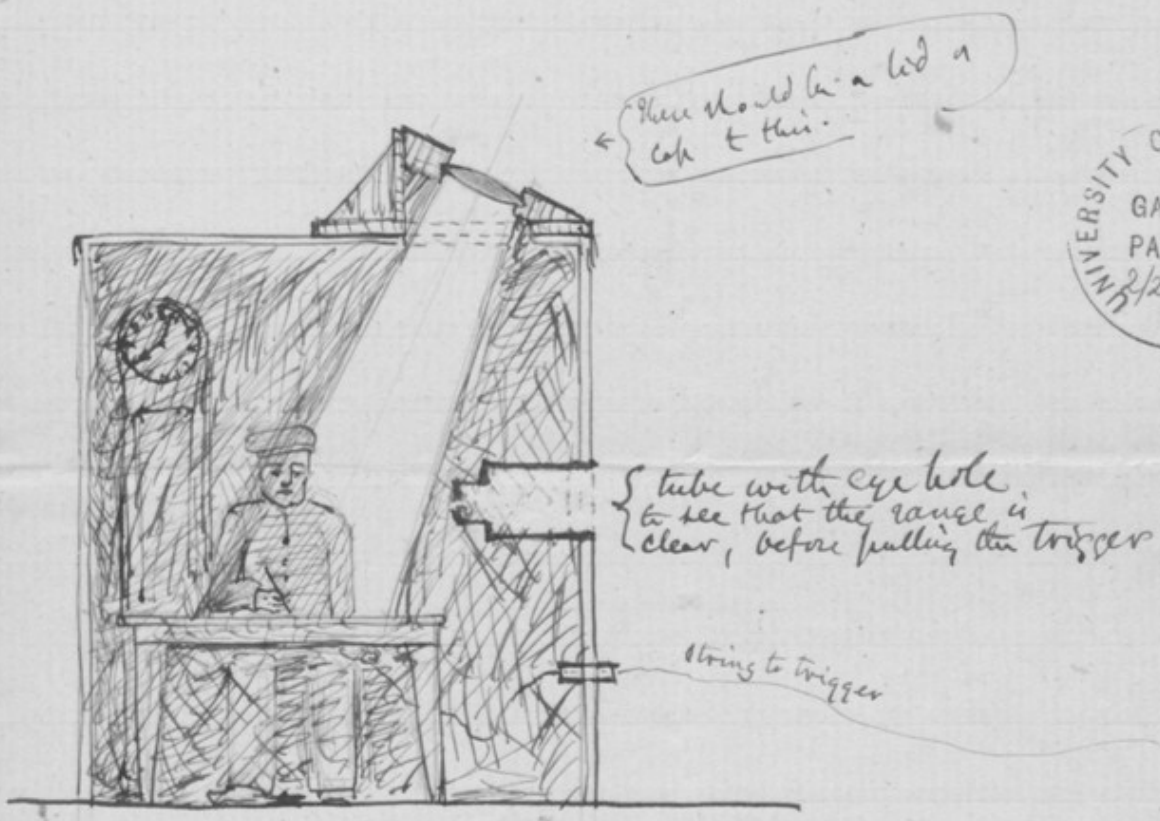 There should be a lid or
cap to this.
UNIVERSITY C
GA
PA
2/2
tube with eye hole
to see that the range is
clear, before pulling the trigger
string to trigger